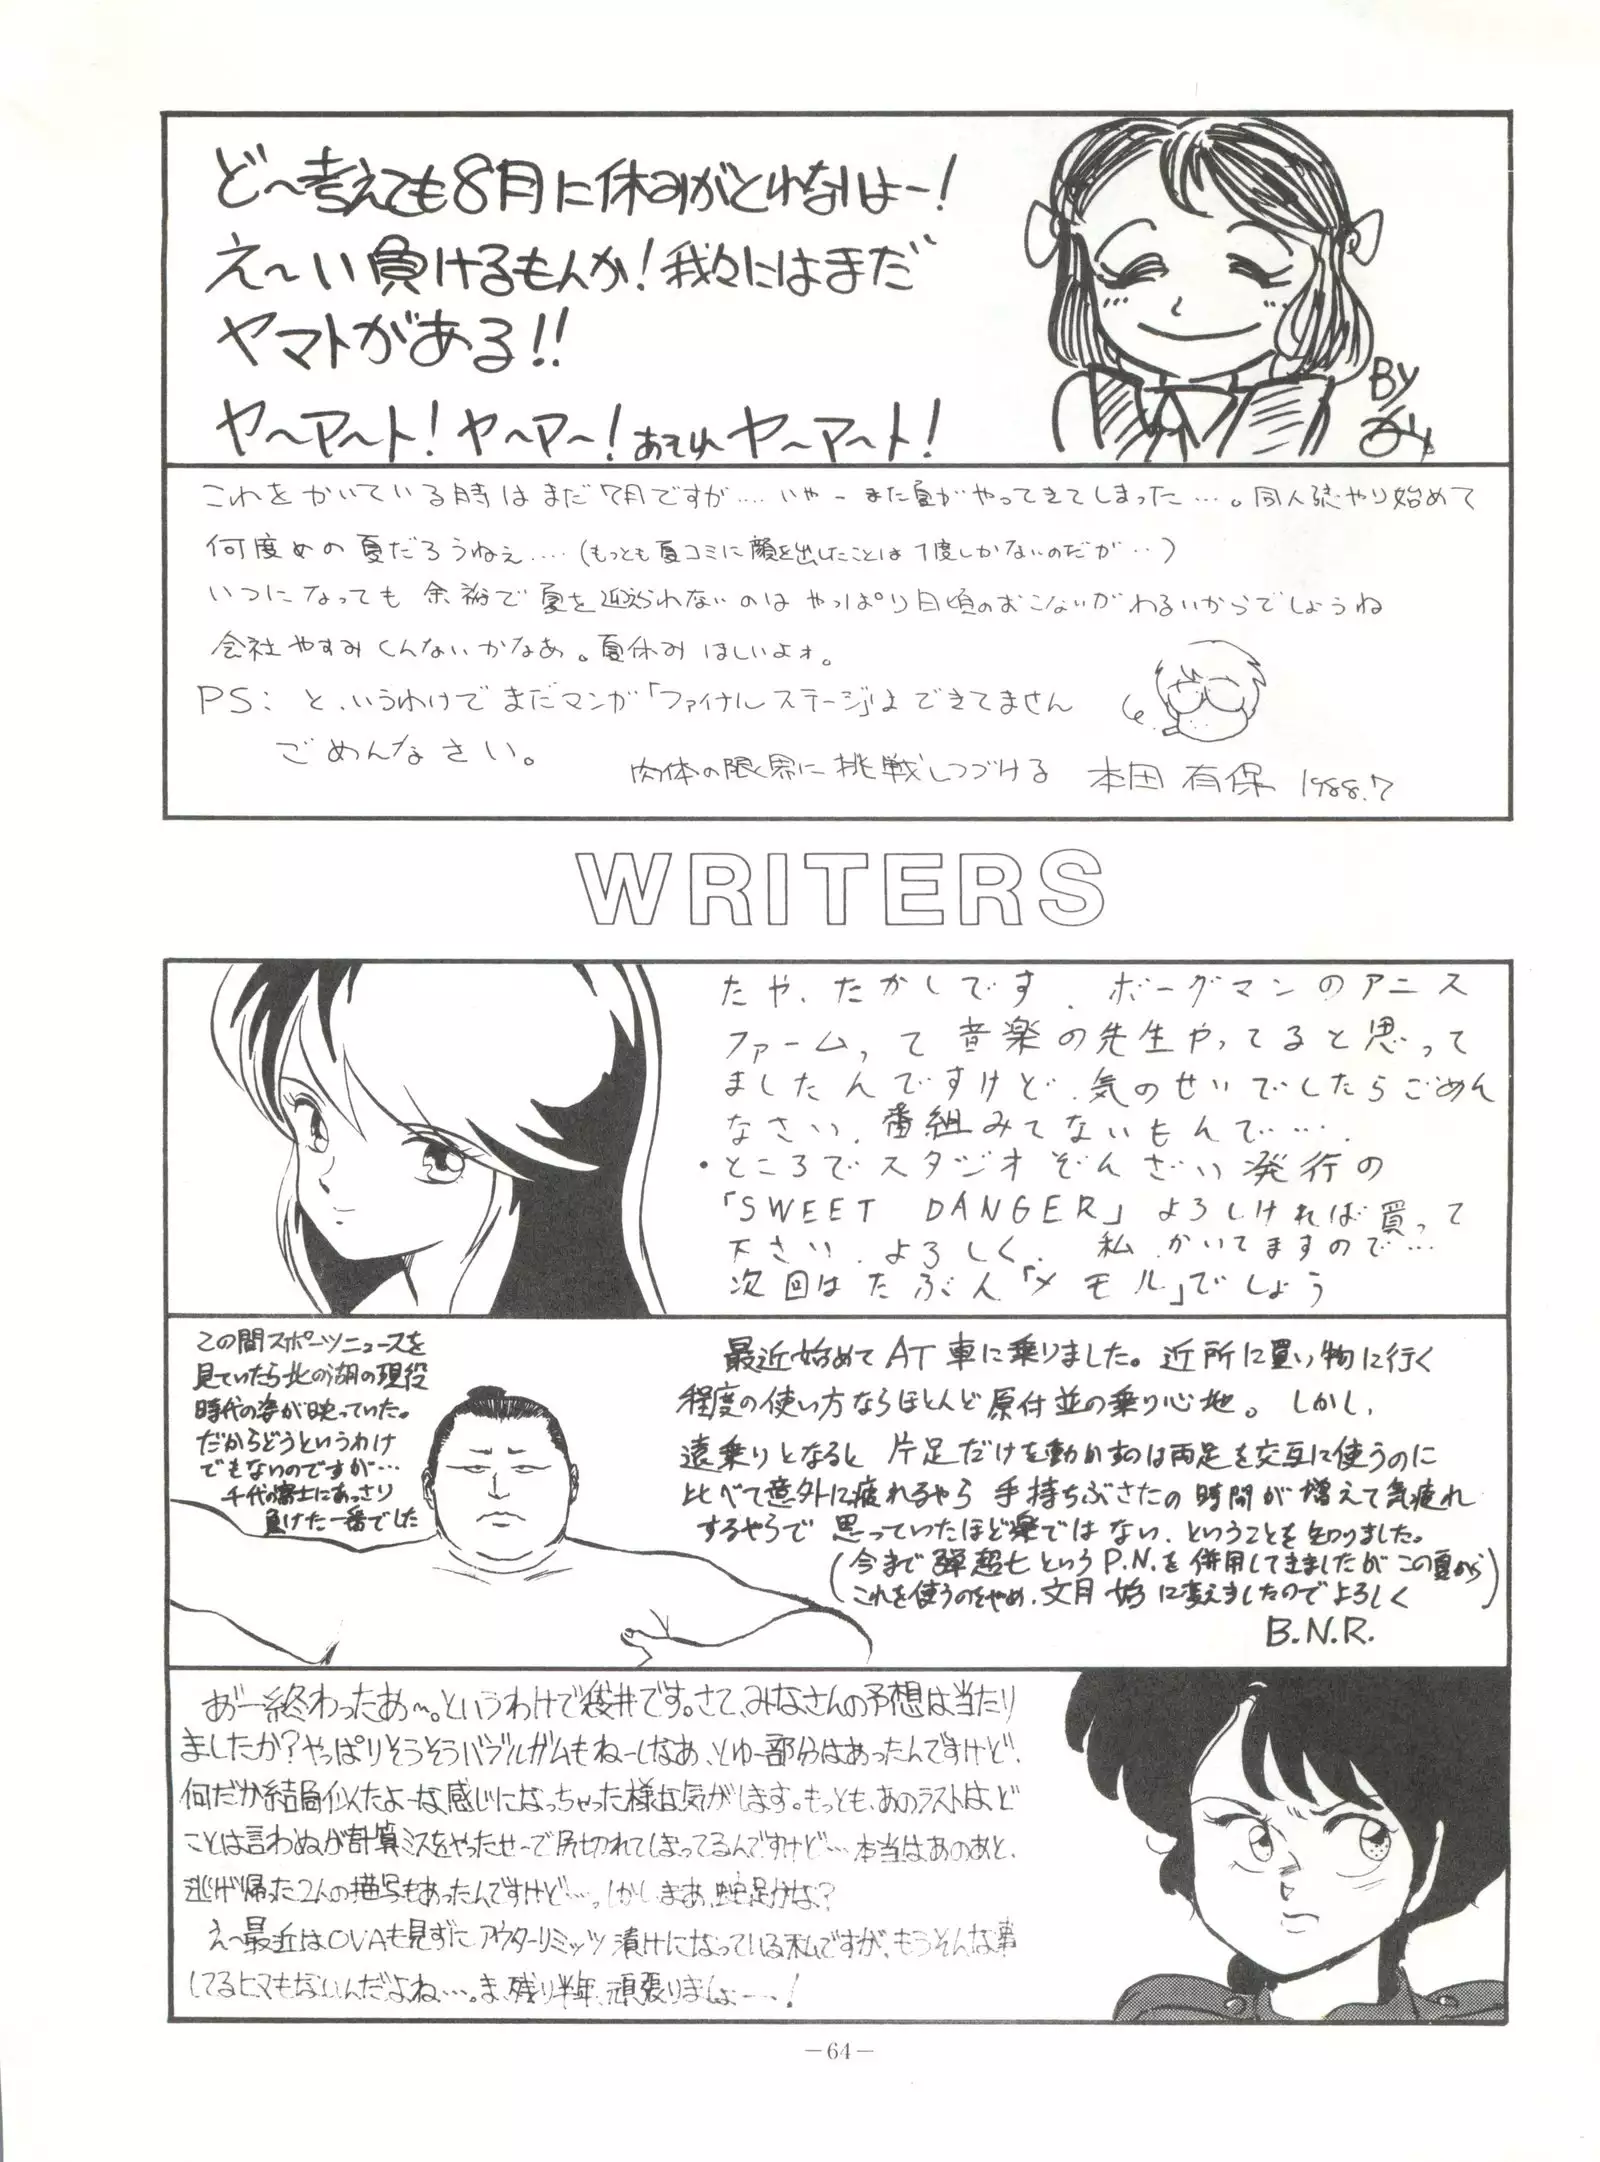 ど〜考えても8月に休みがとれないよー!
え〜い負けるもんか!我々にはまだ
ヤマトがある!!
ヤ〜マ〜ト!ヤ〜マ〜!あそれヤ〜マ〜ト!
By
これをかいている時はまだ7月ですが……いやーまた夏がやってきてしまった……。同人誌やり始めて
何度めの夏だろうねぇ……(もっとも夏コミに顔を出したことは1度しかないのだが…)
いつになっても余裕で夏を迎えられないのはやっぱり日頃のおこないがわるいからでしょうね
会社やすみくんないかなあ。夏休みほしいよォ。
PS: と、いうわけでまだマンガ「ファイナルステージ」はできてません
ごめんなさい。
肉体の限界に挑戦しつづける 本田有保 1988.7
WRITERS
たや、たかしです、ボーグマンのアニス
ファームって音楽の先生やってると思って
ましたんですけど、気のせいでしたらごめん
なさい、番組みてないもんで……、
・ところでスタジオぞんざい発行の
「SWEET DANGER」よろしければ買って
下さい、よろしく、私、かいてますので…
次回はたぶん「メモル」でしょう
この間スポーツニュースを
見ていたら北の湖の現役
時代の姿が映っていた。
だからどうというわけ
でもないのですが…
千代の富士にあっさり
負けた一番でした
最近始めてAT車に乗りました。近所に買い物に行く
程度の使い方ならほとんど原付並の乗り心地。しかし、
遠乗りとなると片足だけを動かすのは両足を交互に使うのに
比べて意外に疲れるやら手持ちぶさたの時間が増えて気疲れ
するやらで思っていたほど楽ではない、ということを知りました。
(今まで弾超七というP.N.を併用してきましたがこの夏から
これを使うのをやめ、文月 始に変えましたのでよろしく)
B.N.R.
あ゙ー終わったあ〜。というわけで袋井です。さて、みなさんの予想は当たり
ましたか?やっぱりそうそうバブルガムもねーしなあ、とゆー部分はあったんですけど、
何だか結局似たよーな感じになっちゃった様な気がします。もっとも、あのラストは、ど
ことは言わぬが計算ミスをやったせーで尻切れてしまってるんですけど…本当はあのあと、
逃げ帰った2人の描写もあったんですけど…っしかしまあ、蛇足かな?
え〜最近はOVAも見ずにアウターリミッツ漬けになっている私ですが、もうそんな事
してるヒマもないんだよね…。ま、残り半年、頑張りましょー!
—64—